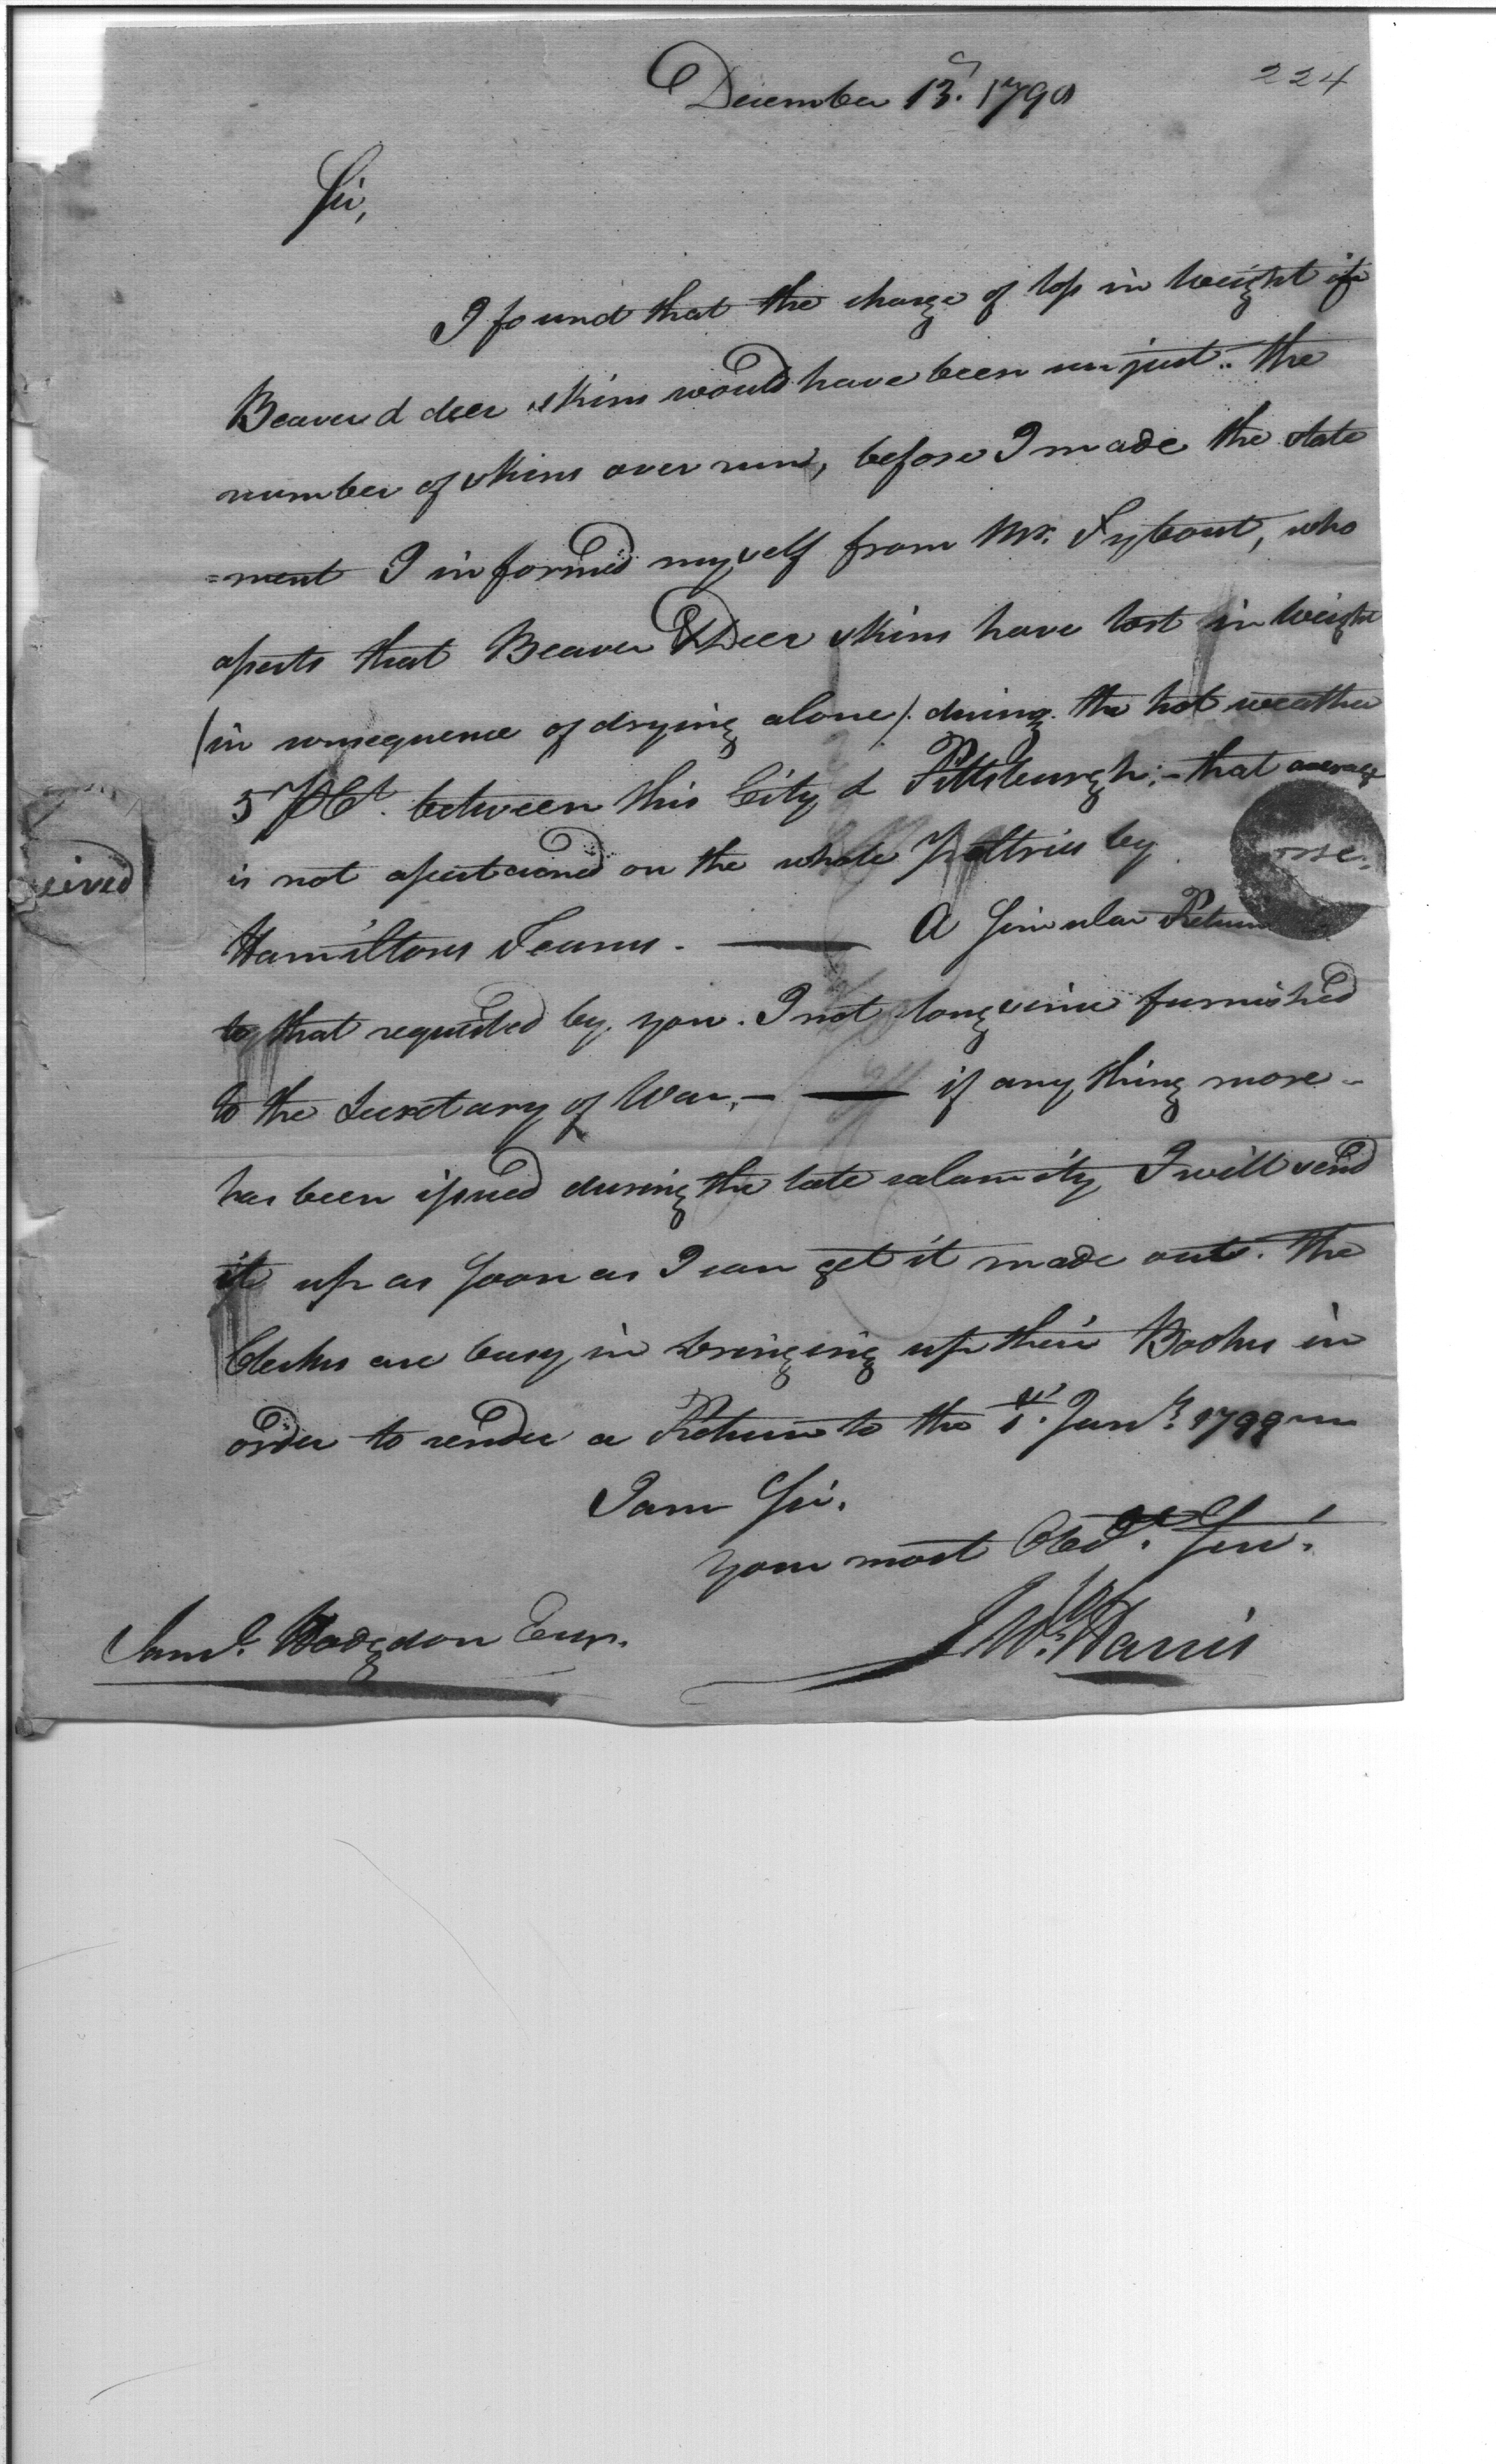 224
December 13. 179
Sir,
I found that the charge of loss in weight in
Beaver & deer skins would have been unjust.. the
number of skins over run, before I made the state
=ment I informed myself from Mr. Fybout, who
asserts that Beaver & Deer skins have lost in weight
/in consequence of drying alone/. during the hot weather
5 PrCt. between this City & Pittsburgh; - that average
is not apertained on the whole Peltries by
Hamiltons Teams. — A Simular Return
to that requested by you. I not long since furnished
to the Secretary of War, - — if any thing more -
has been issued during the late calamity I will send
it up as soon as I can get it made out. the
Clerks are busy in bringing up their Books in
order to render a Return to the 1st. Jany. 1799
I am Sir.
your most Obedt. Servt.
Jno. Harris
Saml. Hodgdon Esqr.
eived